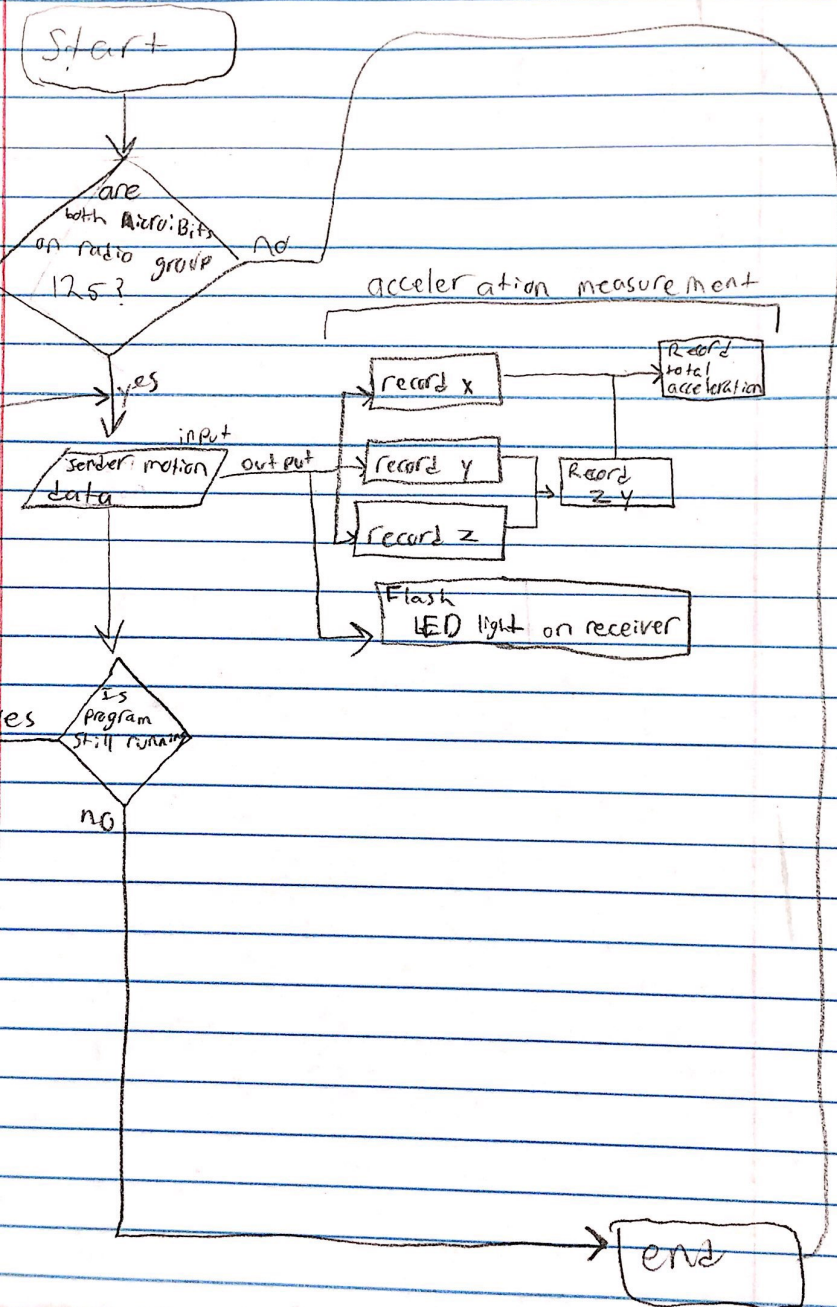 Start
are
both Micro:Bits
on radio group
125?
no
acceleration measurement
yes
input
sender motion
data
output
record x
record y
record z
Record
total
acceleration
Record
z y
Flash
LED light on receiver
Is
program
still running
es
no
end